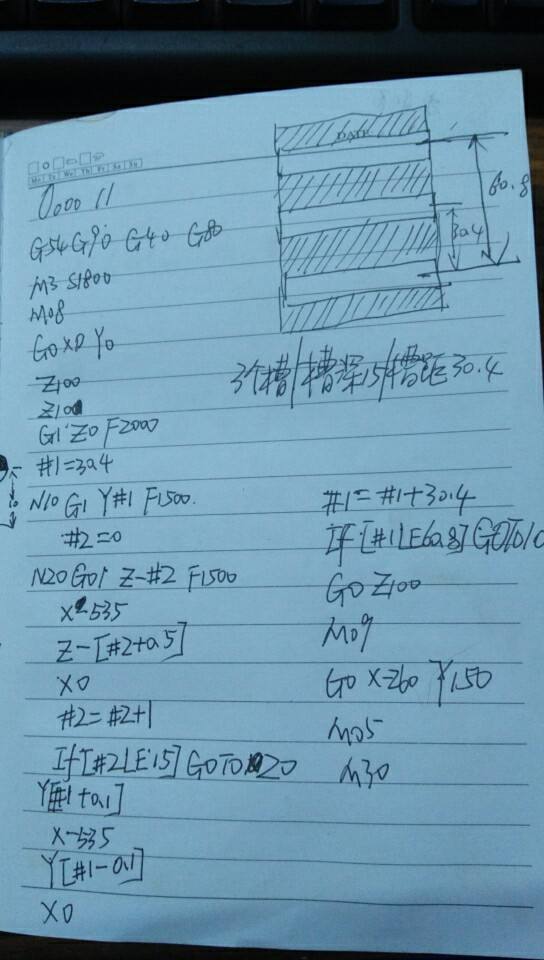 DATE
Mo Tu We Th Fr Sa Su
O00011
G54 G90 G40 G80
M3 S1800
M08
G0 X0 Y0
Z100
Z100
G1 Z0 F2000
#1=30.4
N10 G1 Y#1 F1500.
#2=0
N20 G01 Z-#2 F1500
X-535
Z-[#2+0.5]
X0
#2=#2+1
If[#2LE15] GOTO 20
Y[#1+0.1]
X-535
Y[#1-0.1]
X0
60.8
30.4
3个槽/槽深15/槽距30.4
#1=#1+30.4
If[#1LE60.8]GOTO10
G0 Z100
M09
G0 X-260 Y150
M05
M30
10